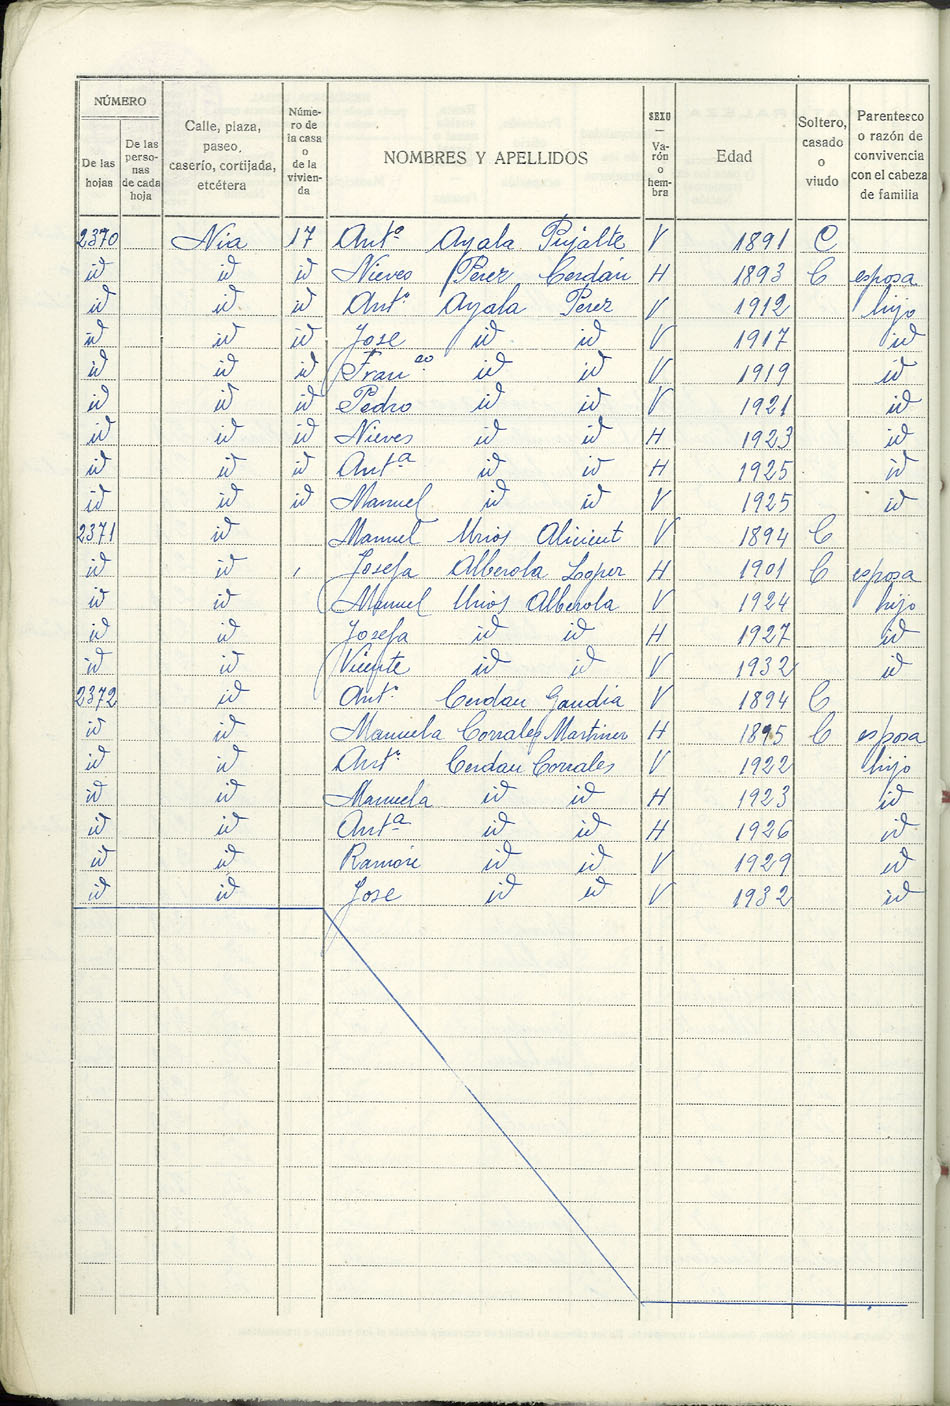 NÚMERO
De las hojas
De las perso- nas de cada hoja
Calle, plaza, paseo, caserío, cortijada, etcétera
Núme- ro de la casa o de la vivien- da
NOMBRES Y APELLIDOS
SEXO — Va- rón o hem- bra
Edad
Soltero, casado o viudo
Parentesco o razón de convivencia con el cabeza de familia
2370 Nia 17 Antº Ayala Pujalte V 1891 C
id id id Nieves Perez Cerdán H 1893 C esposa
id id id Antº Ayala Perez V 1912 hijo
id id id Jose id id V 1917 id
id id id Franco id id V 1919 id
id id id Pedro id id V 1921 id
id id id Nieves id id H 1923 id
id id id Antª id id H 1925 id
id id id Manuel id id V 1925 id
2371 id Manuel Urios V 1894 C
id id Josefa Alberola Lopez H 1901 C esposa
id id Manuel Urios Alberola V 1924 hijo
id id Josefa id id H 1927 id
id id Vicente id id V 1932 id
2372 id Antº Cerdan Gandia V 1894 C
id id Manuela Corrales Martinez H 1895 C esposa
id id Antº Cerdan Corrales V 1922 hijo
id id Manuela id id H 1923 id
id id Antª id id H 1926 id
id id Ramón id id V 1929 id
id id Jose id id V 1932 id